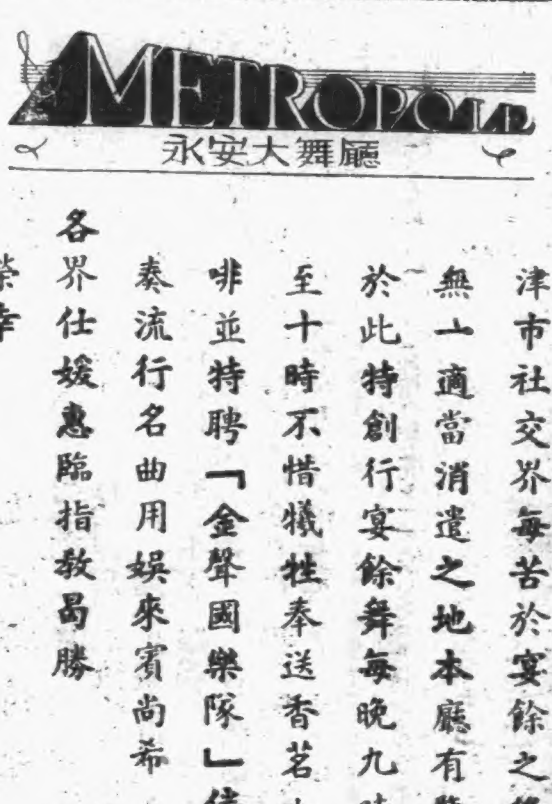 METROPOLE
永安大舞廳
津市社交界每苦於宴餘之
無一適當消遣之地本廳有
於此特創行宴餘舞每晚九
至十時不惜犧牲奉送香茗
啡並特聘「金聲國樂隊」
奏流行名曲用娛來賓尚希
各界仕媛惠臨指教曷勝
榮幸